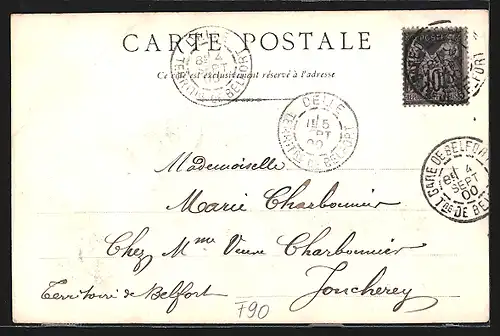 CARTE POSTALE
Ce côté est exclusivement réservé à l'adresse
POSTE
10
DELLE
1E 5
SEPT
00
TERRIT. DE BELFORT
GARE DE BELFORT
8E 4
SEPT
00
TRE DE BELFORT
Mademoiselle
Marie Charbonnier
Chez Mme Veuve Charbonnier
Joncherey
Territoire de Belfort
F90